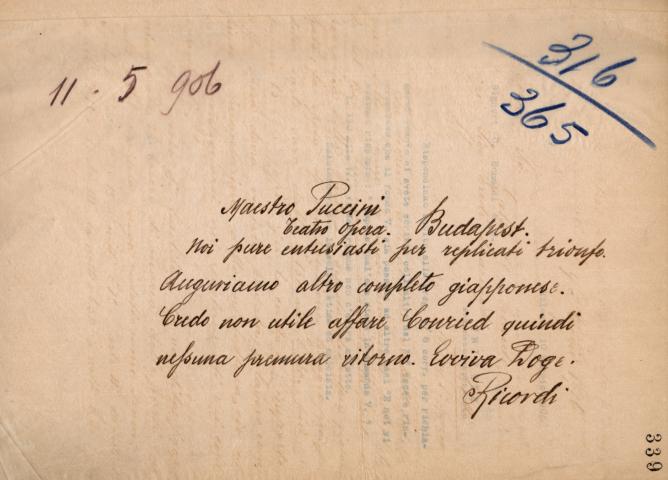 11 · 5 906
316
365
Maestro Puccini
Teatro Opera. Budapest.
Noi pure entusiasti per replicati trionfo.
Auguriamo altro completo giapponese.
Credo non utile affare Conried quindi
nessuna premura ritorno. Evviva Doge.
Ricordi
339